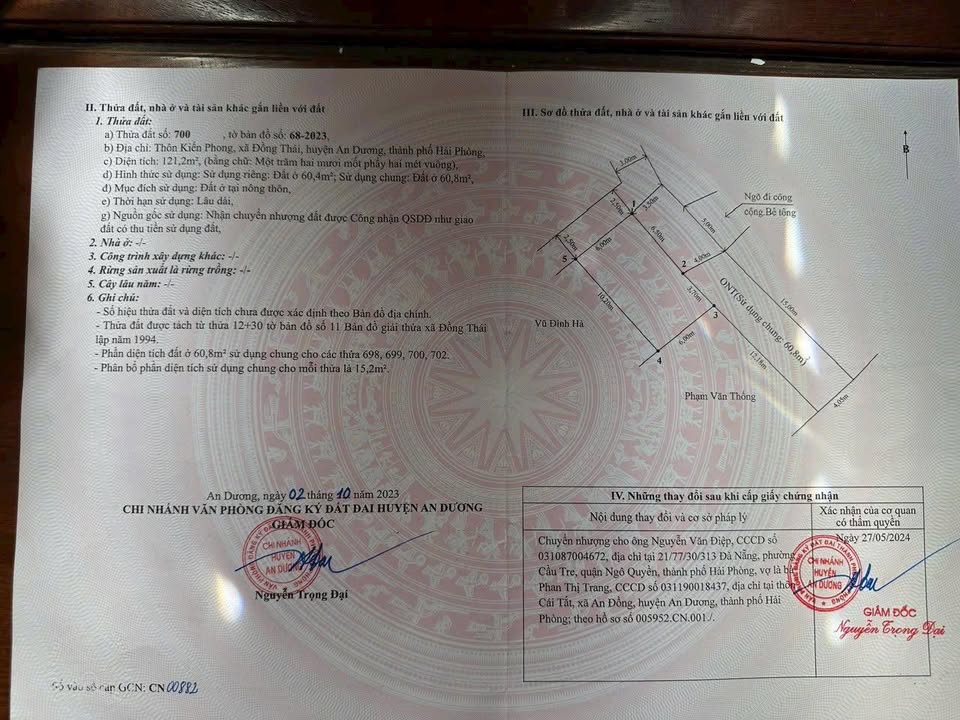 II. Thửa đất, nhà ở và tài sản khác gắn liền với đất
1. Thửa đất:
a) Thửa đất số: 700 , tờ bản đồ số: 68-2023,
b) Địa chỉ: Thôn Kiến Phong, xã Đồng Thái, huyện An Dương, thành phố Hải Phòng,
c) Diện tích: 121,2m², (bằng chữ: Một trăm hai mươi mốt phẩy hai mét vuông),
d) Hình thức sử dụng: Sử dụng riêng: Đất ở 60,4m²; Sử dụng chung: Đất ở 60,8m²,
đ) Mục đích sử dụng: Đất ở tại nông thôn,
e) Thời hạn sử dụng: Lâu dài,
g) Nguồn gốc sử dụng: Nhận chuyển nhượng đất được Công nhận QSDĐ như giao
đất có thu tiền sử dụng đất,
2. Nhà ở: -/-
3. Công trình xây dựng khác: -/-
4. Rừng sản xuất là rừng trồng: -/-
5. Cây lâu năm: -/-
6. Ghi chú:
- Số hiệu thửa đất và diện tích chưa được xác định theo Bản đồ địa chính.
- Thửa đất được tách từ thửa 12+30 tờ bản đồ số 11 Bản đồ giải thửa xã Đồng Thái
lập năm 1994.
- Phần diện tích đất ở 60,8m² sử dụng chung cho các thửa 698, 699, 700, 702.
- Phân bổ phần diện tích sử dụng chung cho mỗi thửa là 15,2m².
An Dương, ngày 02 tháng 10 năm 2023
CHI NHÁNH VĂN PHÒNG ĐĂNG KÝ ĐẤT ĐAI HUYỆN AN DƯƠNG
GIÁM ĐỐC
CHI NHÁNH
HUYỆN
AN DƯƠNG
Nguyễn Trọng Đại
Số vào sổ cấp GCN: CN 00882
III. Sơ đồ thửa đất, nhà ở và tài sản khác gắn liền với đất
B
3,00m
Ngõ đi công
cộng.Bê tông
2,50m
1
3,50m
5,00m
2,50m
6,00m
6,50m
5
2
4,00m
3,70m
3
ONT(Sử dụng chung: 60,8m²)
15,00m
10,20m
Vũ Đình Hà
6,00m
4
12,18m
Phạm Văn Thống
4,05m
IV. Những thay đổi sau khi cấp giấy chứng nhận
Nội dung thay đổi và cơ sở pháp lý
Xác nhận của cơ quan
có thẩm quyền
Chuyển nhượng cho ông Nguyễn Văn Điệp, CCCD số
031087004672, địa chỉ tại 21/77/30/313 Đà Nẵng, phường
Cầu Tre, quận Ngô Quyền, thành phố Hải Phòng, vợ là bà
Phan Thị Trang, CCCD số 031190018437, địa chỉ tại thôn
Cái Tắt, xã An Đồng, huyện An Dương, thành phố Hải
Phòng; theo hồ sơ số 005952.CN.001./.
Ngày 27/05/2024
VĂN PHÒNG ĐĂNG KÝ ĐẤT ĐAI THÀNH PHỐ HẢI PHÒNG
CHI NHÁNH
HUYỆN
AN DƯƠNG
GIÁM ĐỐC
Nguyễn Trọng Đại